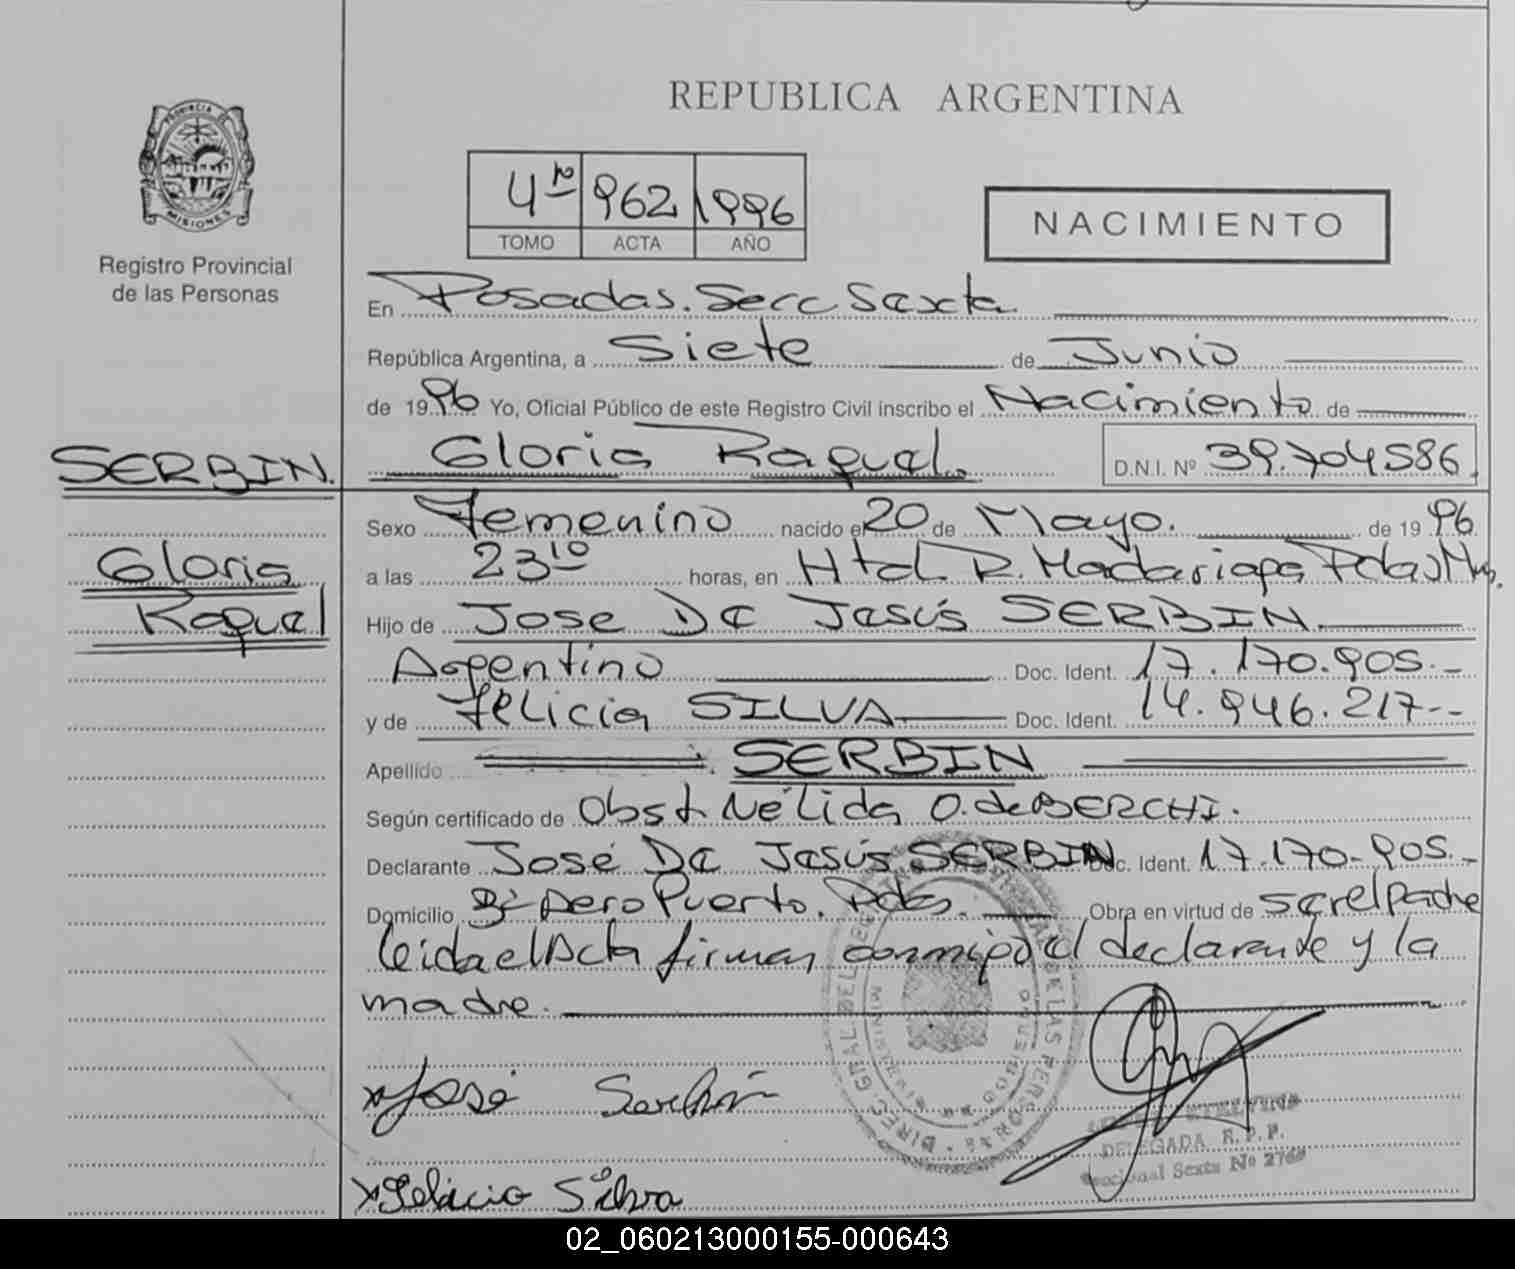 REPUBLICA ARGENTINA
PROVINCIA DE
MISIONES
Registro Provincial
de las Personas
4to 962 1996
TOMO ACTA AÑO
NACIMIENTO
En Posadas. Secc Sexta
República Argentina, a Siete de Junio
de 1996 Yo, Oficial Público de este Registro Civil inscribo el Nacimiento de
SERBIN. Gloria Raquel. D.N.I. Nº 39.704586
Sexo Femenino nacido el 20 de Mayo. de 1996
Gloria
a las 23 10 horas, en Htal R. Madariaga Pdas Mns.
Raquel
Hijo de Jose De Jesús SERBIN.
Argentino Doc. Ident. 17.170.905.-
y de Felicia SILVA Doc. Ident. 14.946.217--
Apellido SERBIN
Según certificado de Obst Nélida O. de BERCHI.
Declarante José De Jesús SERBIN Doc. Ident. 17.170-905.-
Domicilio Bº AeroPuerto. Pdas. Obra en virtud de ser el padre
leida el Acta firman conmigo el declarante y la
madre.
x José Serbín
DELEGADA R. P. P.
Seccional Sexta Nº 276
x Felicia Silva
02_060213000155-000643